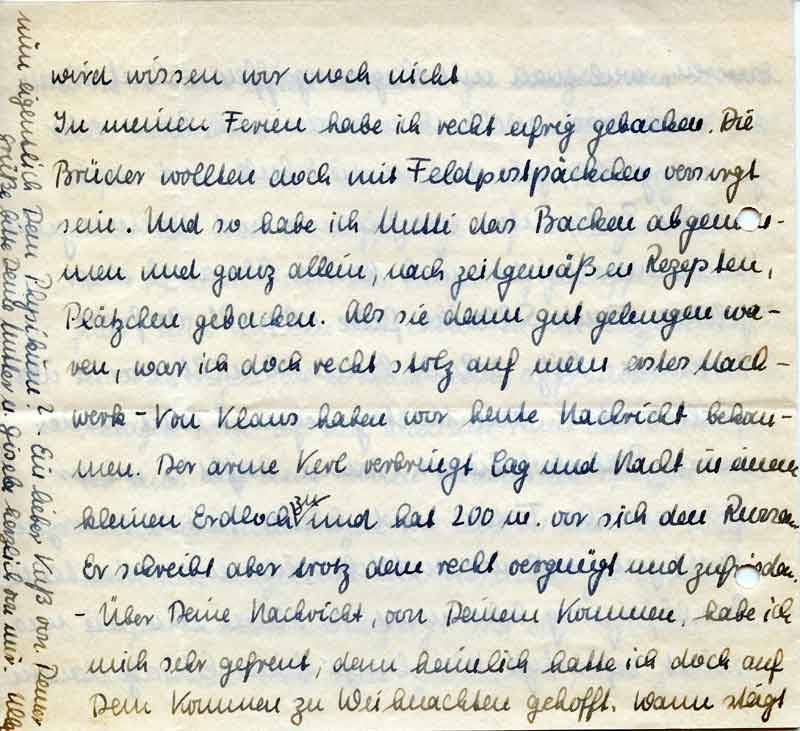 wird wissen wir noch nicht
In meinen Ferien habe ich recht eifrig gebacken. Die
Brüder wollten doch mit Feldpostpäckchen versorgt
sein. Und so habe ich Mutti das Backen abgenom-
men und ganz allein, nach zeitgemäßen Rezepten,
Plätzchen gebacken. Als sie dann gut gelungen wa-
ren, war ich doch recht stolz auf mein erstes Mach-
werk - Von Klaus haben wir heute Nachricht bekom-
men. Der arme Kerl verbringt Tag und Nacht in einem
kleinen Erdloch zu und hat 200 m. vor sich den Russen.
Er schreibt aber trotz dem recht vergnügt und zufrieden.
- Über Deine Nachricht, von Deinem Kommen, habe ich
mich sehr gefreut, denn heimlich hatte ich doch auf
Dein Kommen zu Weihnachten gehofft. Wann steigt
nun eigentlich Dein Physikum? - Ein lieber Kuß von Deiner
grüße bitte Deine Mutter u. Gisela herzlich von mir. Ulla